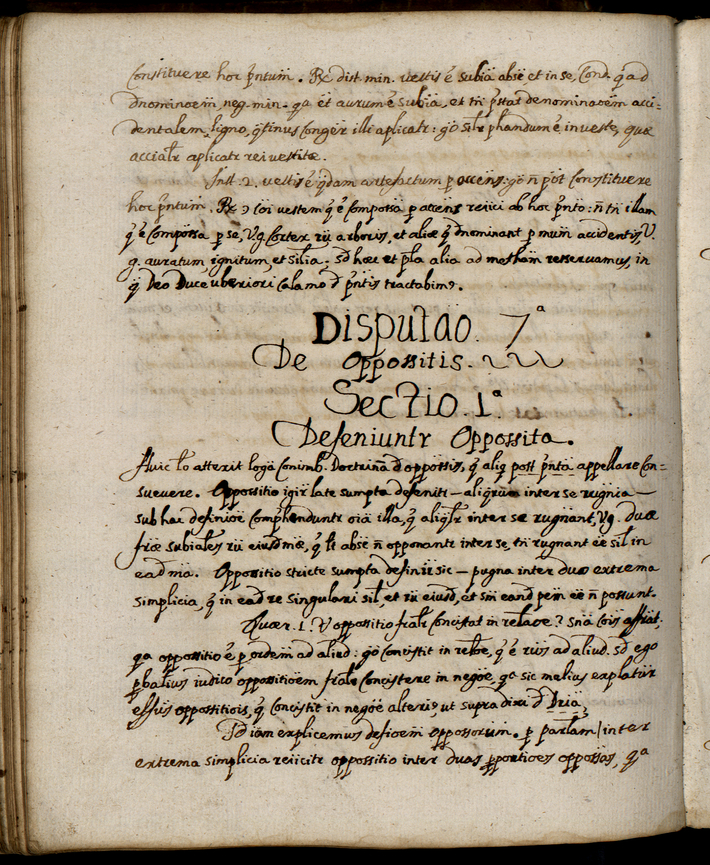 Constituere hoc p̃ntum̃. Rx dist. min. vestis ẽ subia absẽ et in se, Conc. q̃ ad
dnominoem̃, neg. min. qa et aurum ẽ subia, et tñ p̃stat denominaoẽm acci=
dentalem, ligno, q̃tinus Congẽr illi aplicatr: go silr phandum ẽ in veste, quæ
accialr aplicatr rei vestitæ.
Inst. 2. vestis ẽ q̃dam artefactum p accens: go ñ põt Constituere
hoc p̃ntum̃. Rx vestem q̃ ẽ Compossa p accens reiici ab hoc p̃nto: ñ tñ illam
q̃ ẽ Compossa p se, V.g. Cortex arboris, et aliæ q̃ dnominant p accidentis, V.
g. auratum, ignitum, et silia. Sd hæc et pla alia ad resservamus, in
q̃ Deo Duce uberiori Calamo d p̃ntis tractabim9.
Disputao. 7ª
De Oppossitis.
Sectio. 1ª
Defeniuntr Oppossita.
Huic lo atterit loga Conimb. Doctrina d oppossis, q̃ aliq post p̃nta appellare Con=
suevere. Oppossitio igir late sumpta defenitr – aliqrum inter se rugnia –
sub hac definioe Comphenduntr oia illa, q̃ aliqlr inter se rugnant, Vg. duæ
fræ subiales eiusd mæ, q̃ lt absẽ ñ opponantr inter se, tñ rugnant ẽe sil in
ead ma. Oppossitio stricte sumpta definir sic – pugna inter duo extrema
simplicia, q̃ in ead re singulari sil, et eiusd, et sm̃ eand pem ẽe ñ possunt.
Quær. 1. V oppossitio fralr Concistat in relaoe? Sña Cois affrat:
qa oppossitio ẽ p ordem̃ ad aliud: go Concistit in reloe, q̃ ẽ ad aliud. Sd ego
pbalius iudico oppossitioem̃ fralr Concistere in negoe, qa sic melius explatur
effus oppossitiois, q̃ Concistit in negoe alteris, ut supra dixi d Dria.
Sd iam explicemus defioem̃ oppossorum. p parlam inter
extrema simplicia reiicitr oppossitio inter duas pportioes oppossas, qa